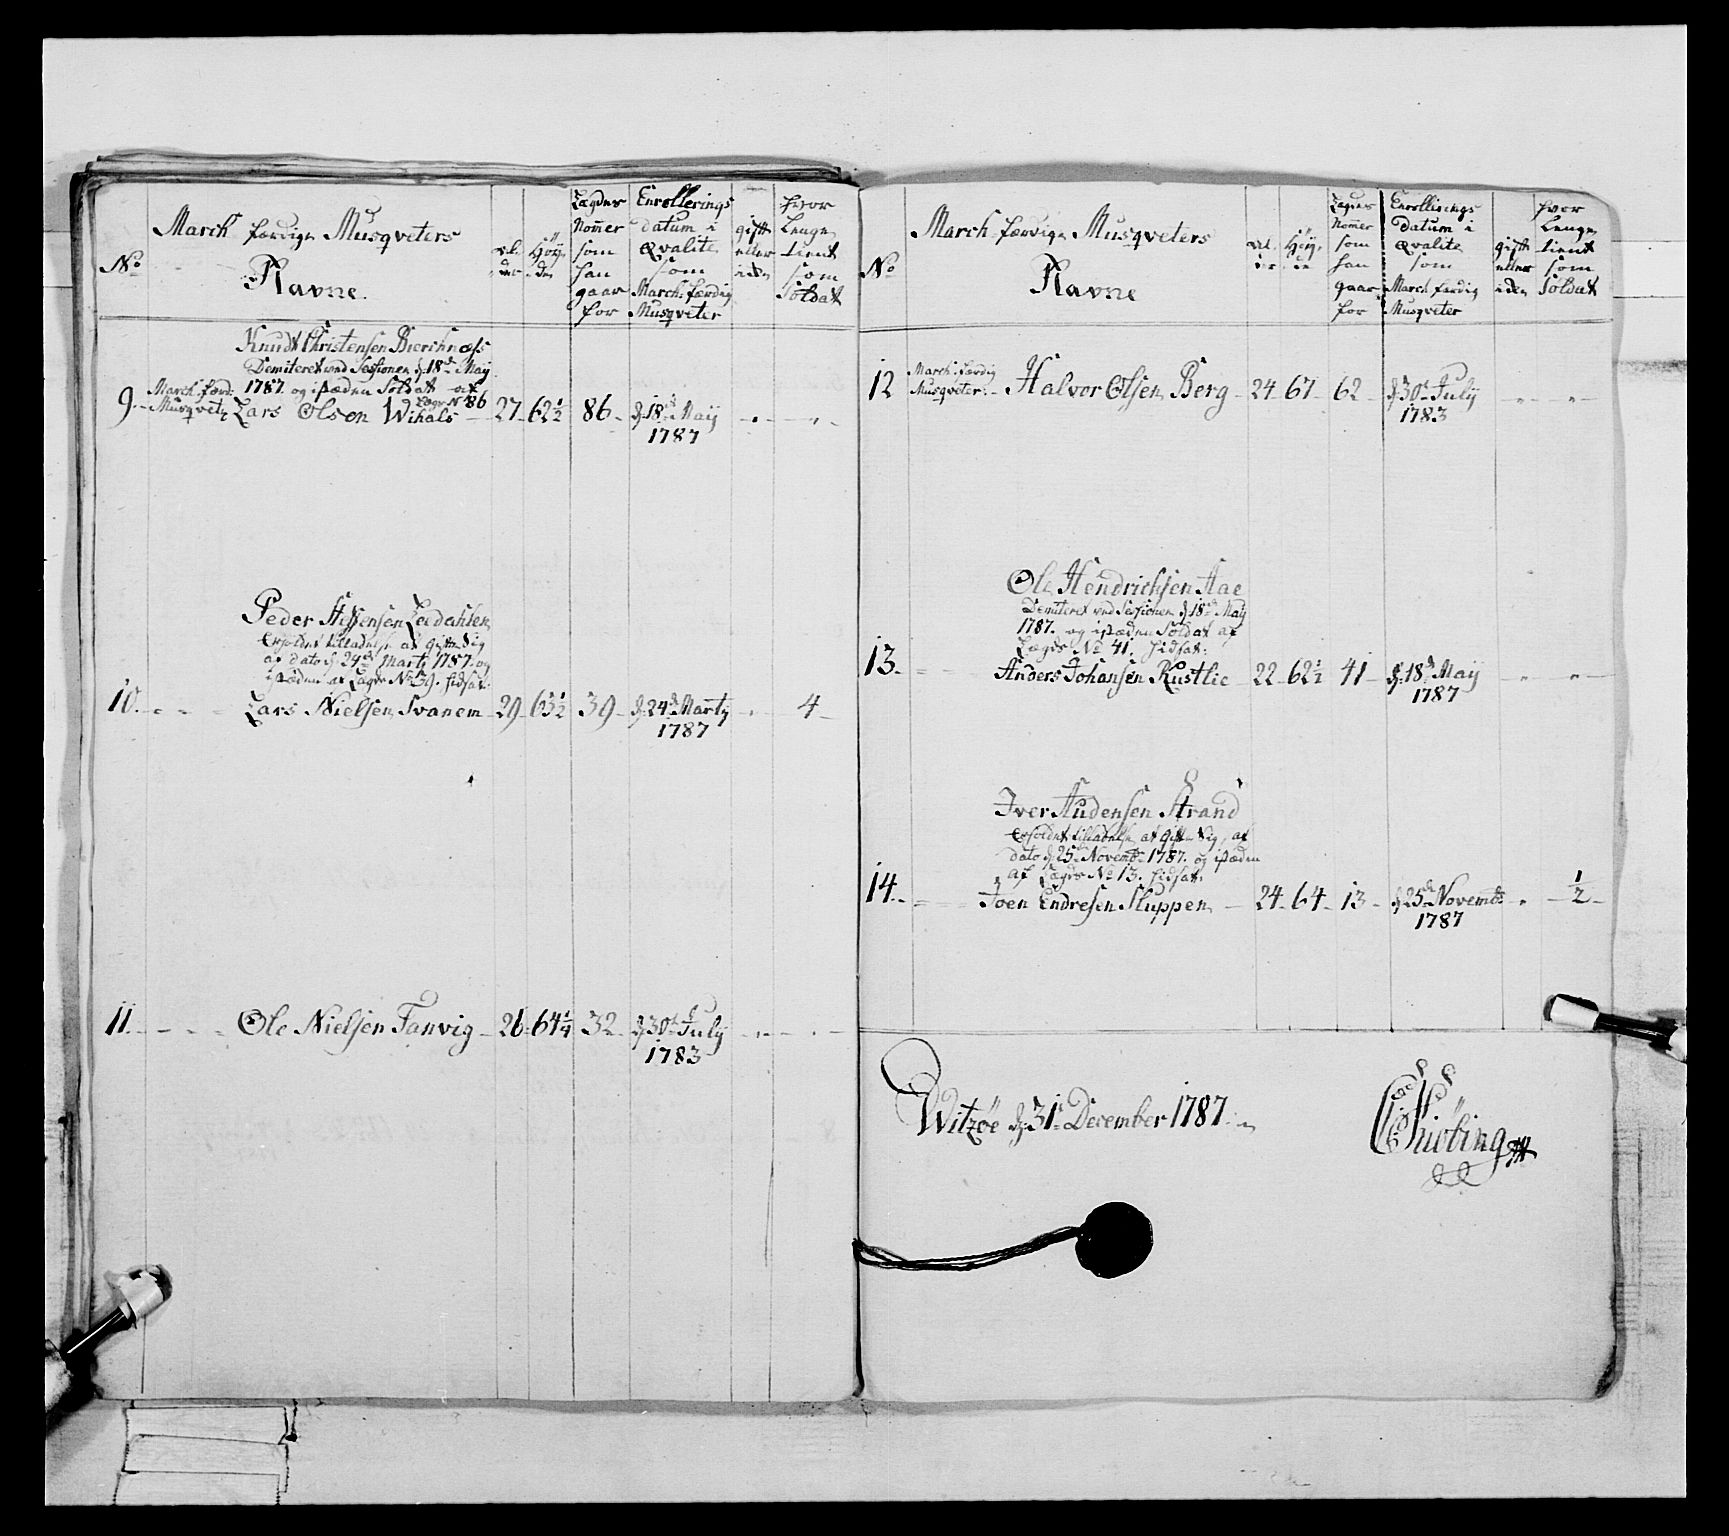 March færdige Musqveters
No
Navne.
Al-
der
Höy-
den
Lægdets
Nomer
som
han
gaar
for
Enrollerings
datum i
Qvalite
som
March-færdig
Musqveter
gift
eller
iden
hvor
Lenge
tient
som
Soldat
Knudt Christensen Bierchnæss
Demiteret ved Sessionen d. 18de May
1787. og istæden Soldat af
Lægd No 86
9. March færd: Musqvet: Lars Olsen Wihals 27 62½ 86 d. 18de Maij
1787
Peder Sissensen Leedahlen
Erholdet tilladelse at gifte Sig
af dato d. 24de Marty 1787. og
istæden af Lægds No 39. hidsat:
10. Lars Nielsen Svanem 29 63½ 39 d. 24de Marty 4
1787
11. Ole Nielsen Tanvig 26 64¼ 32 d. 30te July
1783
March færdige Musqveters
No
Navne
Al-
der
Höy-
de
Lægdets
Nomer
som
han
gaar
for
Enrollerings
datum i
Qvalite
som
March færdig
Musqveter
gift
eller
iden
hvor
Lenge
tient
som
Soldat
12 March færdig Musqveter: Halvor Olsen Berg 24 67 62 d. 30te July
1783
Ole Hendrichsen Aae
Demiteret ved Sessionen d. 18de May
1787. og istæden Soldat af
Lægds No 41. hidsat:
13. Anders Johansen Rustlie 22 62½ 41 d. 18de Maij
1787
Iver Audensen Strand
Erholdet tilladelse at gifte Sig, af
dato d. 25de Novembr 1787. og istæden
af Lægds No 13. hidsat:
14. Joen Endresen Sluppen 24 64 13 d. 25de Novembr ½
1787
Witzöe d. 31te December 1787.